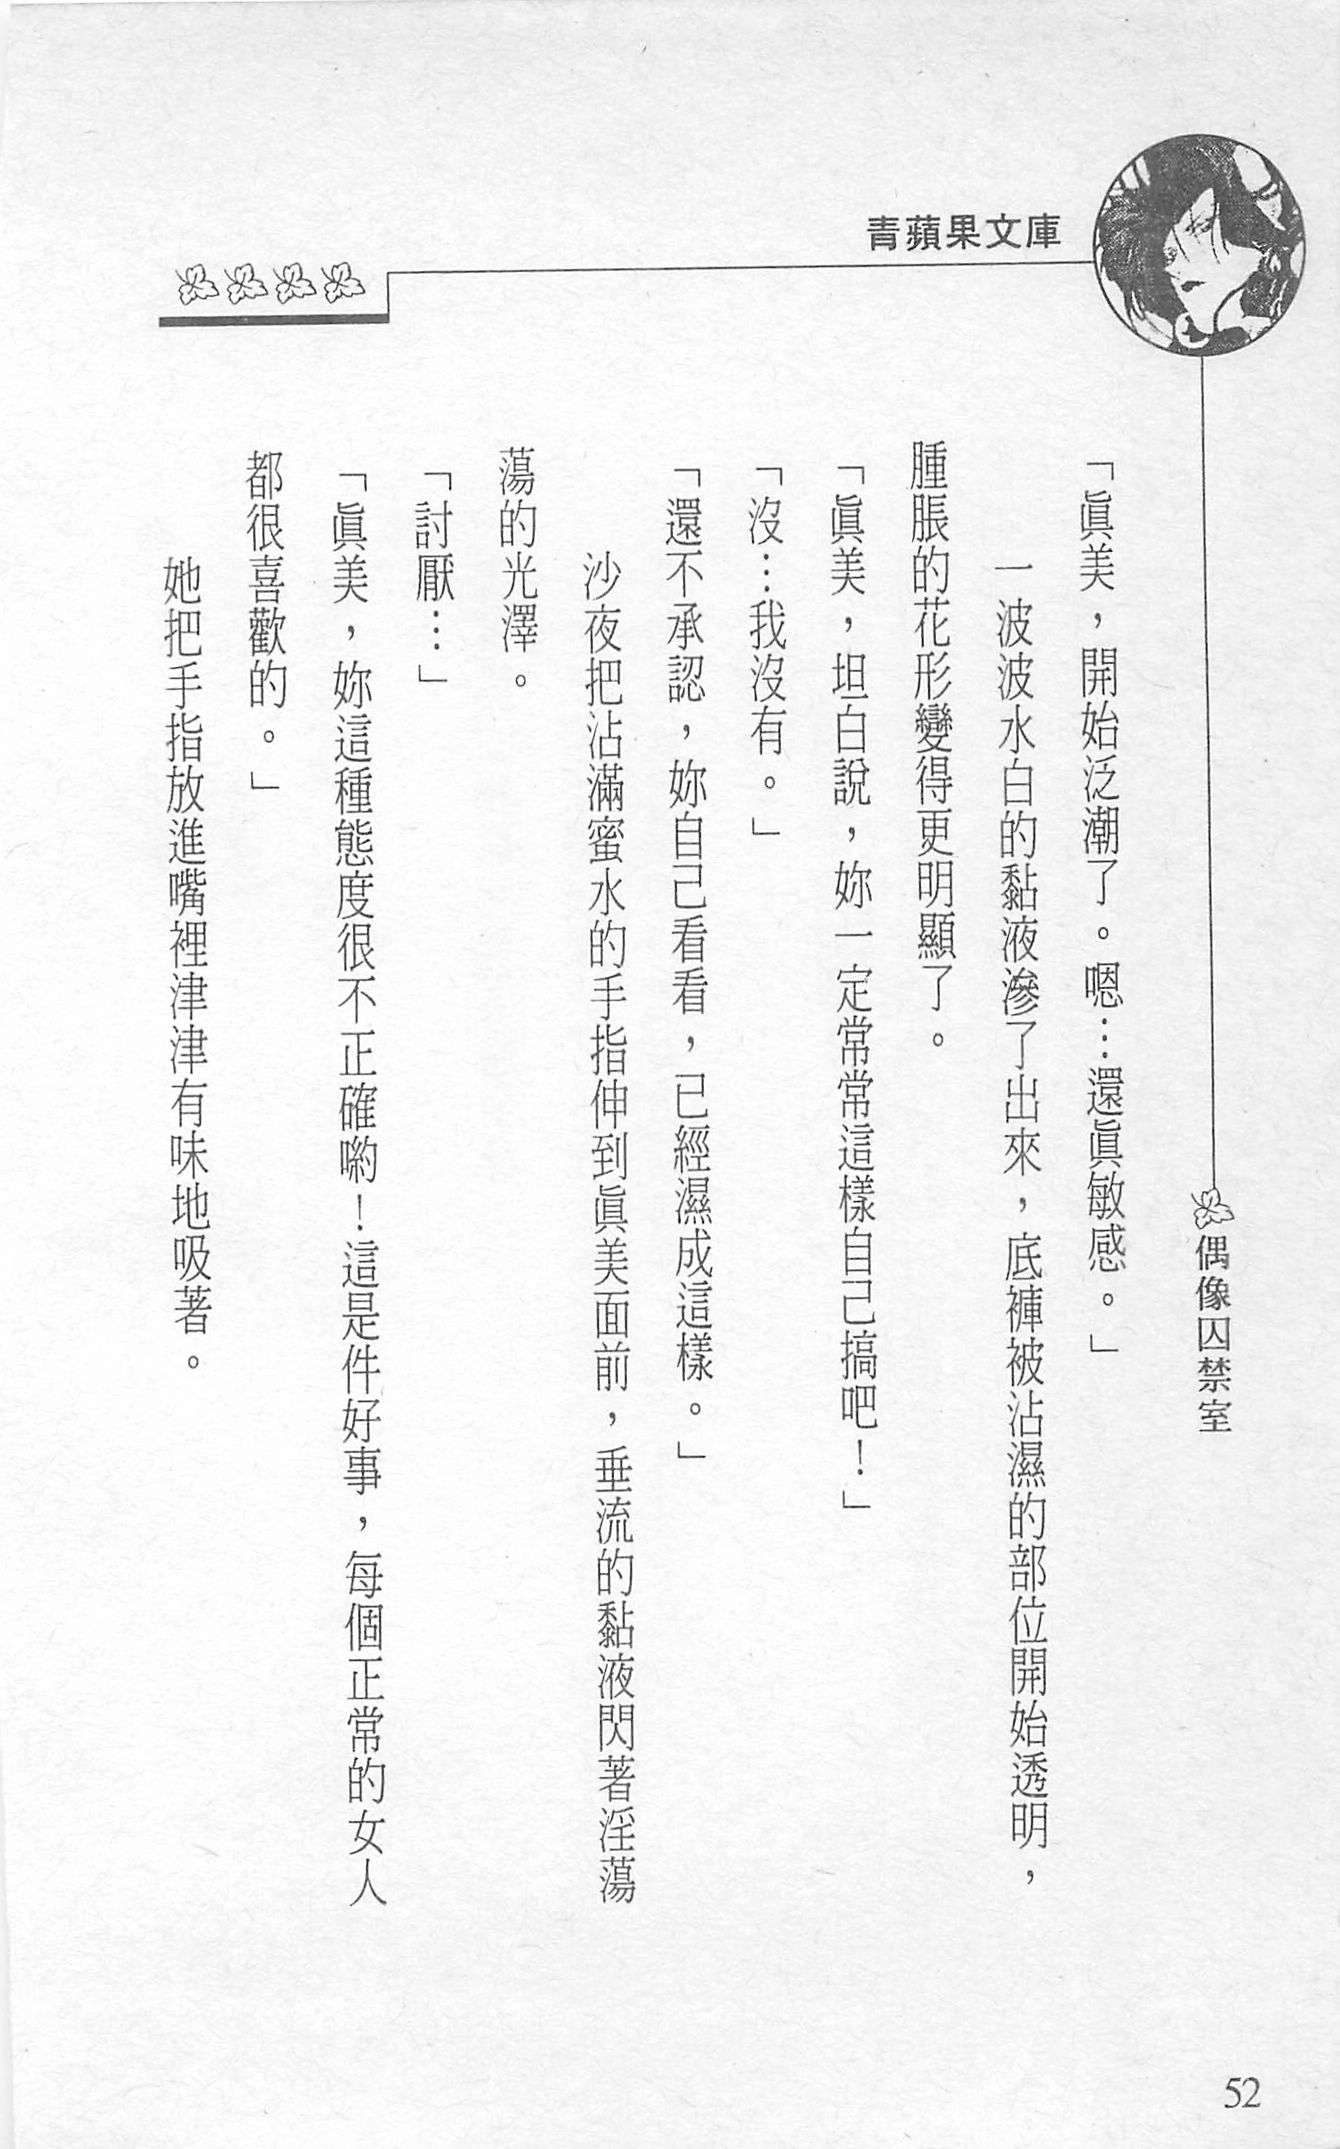 青蘋果文庫
偶像囚禁室
「眞美，開始泛潮了。嗯…還眞敏感。」
一波波水白的黏液滲了出來，底褲被沾濕的部位開始透明，
腫脹的花形變得更明顯了。
「眞美，坦白說，妳一定常常這樣自己搞吧！」
「沒…我沒有。」
「還不承認，妳自己看看，已經濕成這樣。」
沙夜把沾滿蜜水的手指伸到眞美面前，垂流的黏液閃著淫蕩
蕩的光澤。
「討厭…」
「眞美，妳這種態度很不正確喲！這是件好事，每個正常的女人
都很喜歡的。」
她把手指放進嘴裡津津有味地吸著。
52